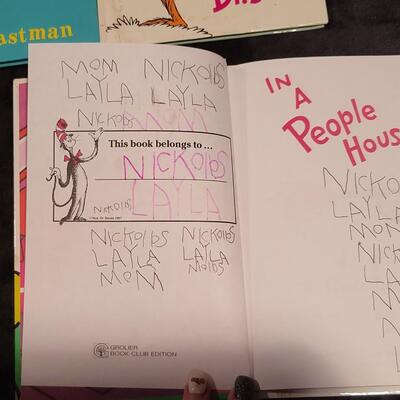 astman
MOM NICKOLDS
LAYLA LAYLA
NICKOLDS MOM
This book belongs to ...
NICKOLDS
LAYLA
NICKOLDS
NICKOLDS NICKOLDS
LAYLA LAYLA
MOM MOLDS
GROLIER
BOOK CLUB EDITION
IN
A
People
Hous
NICKO
LAYL
MOM
NICK
LA
M
N
L